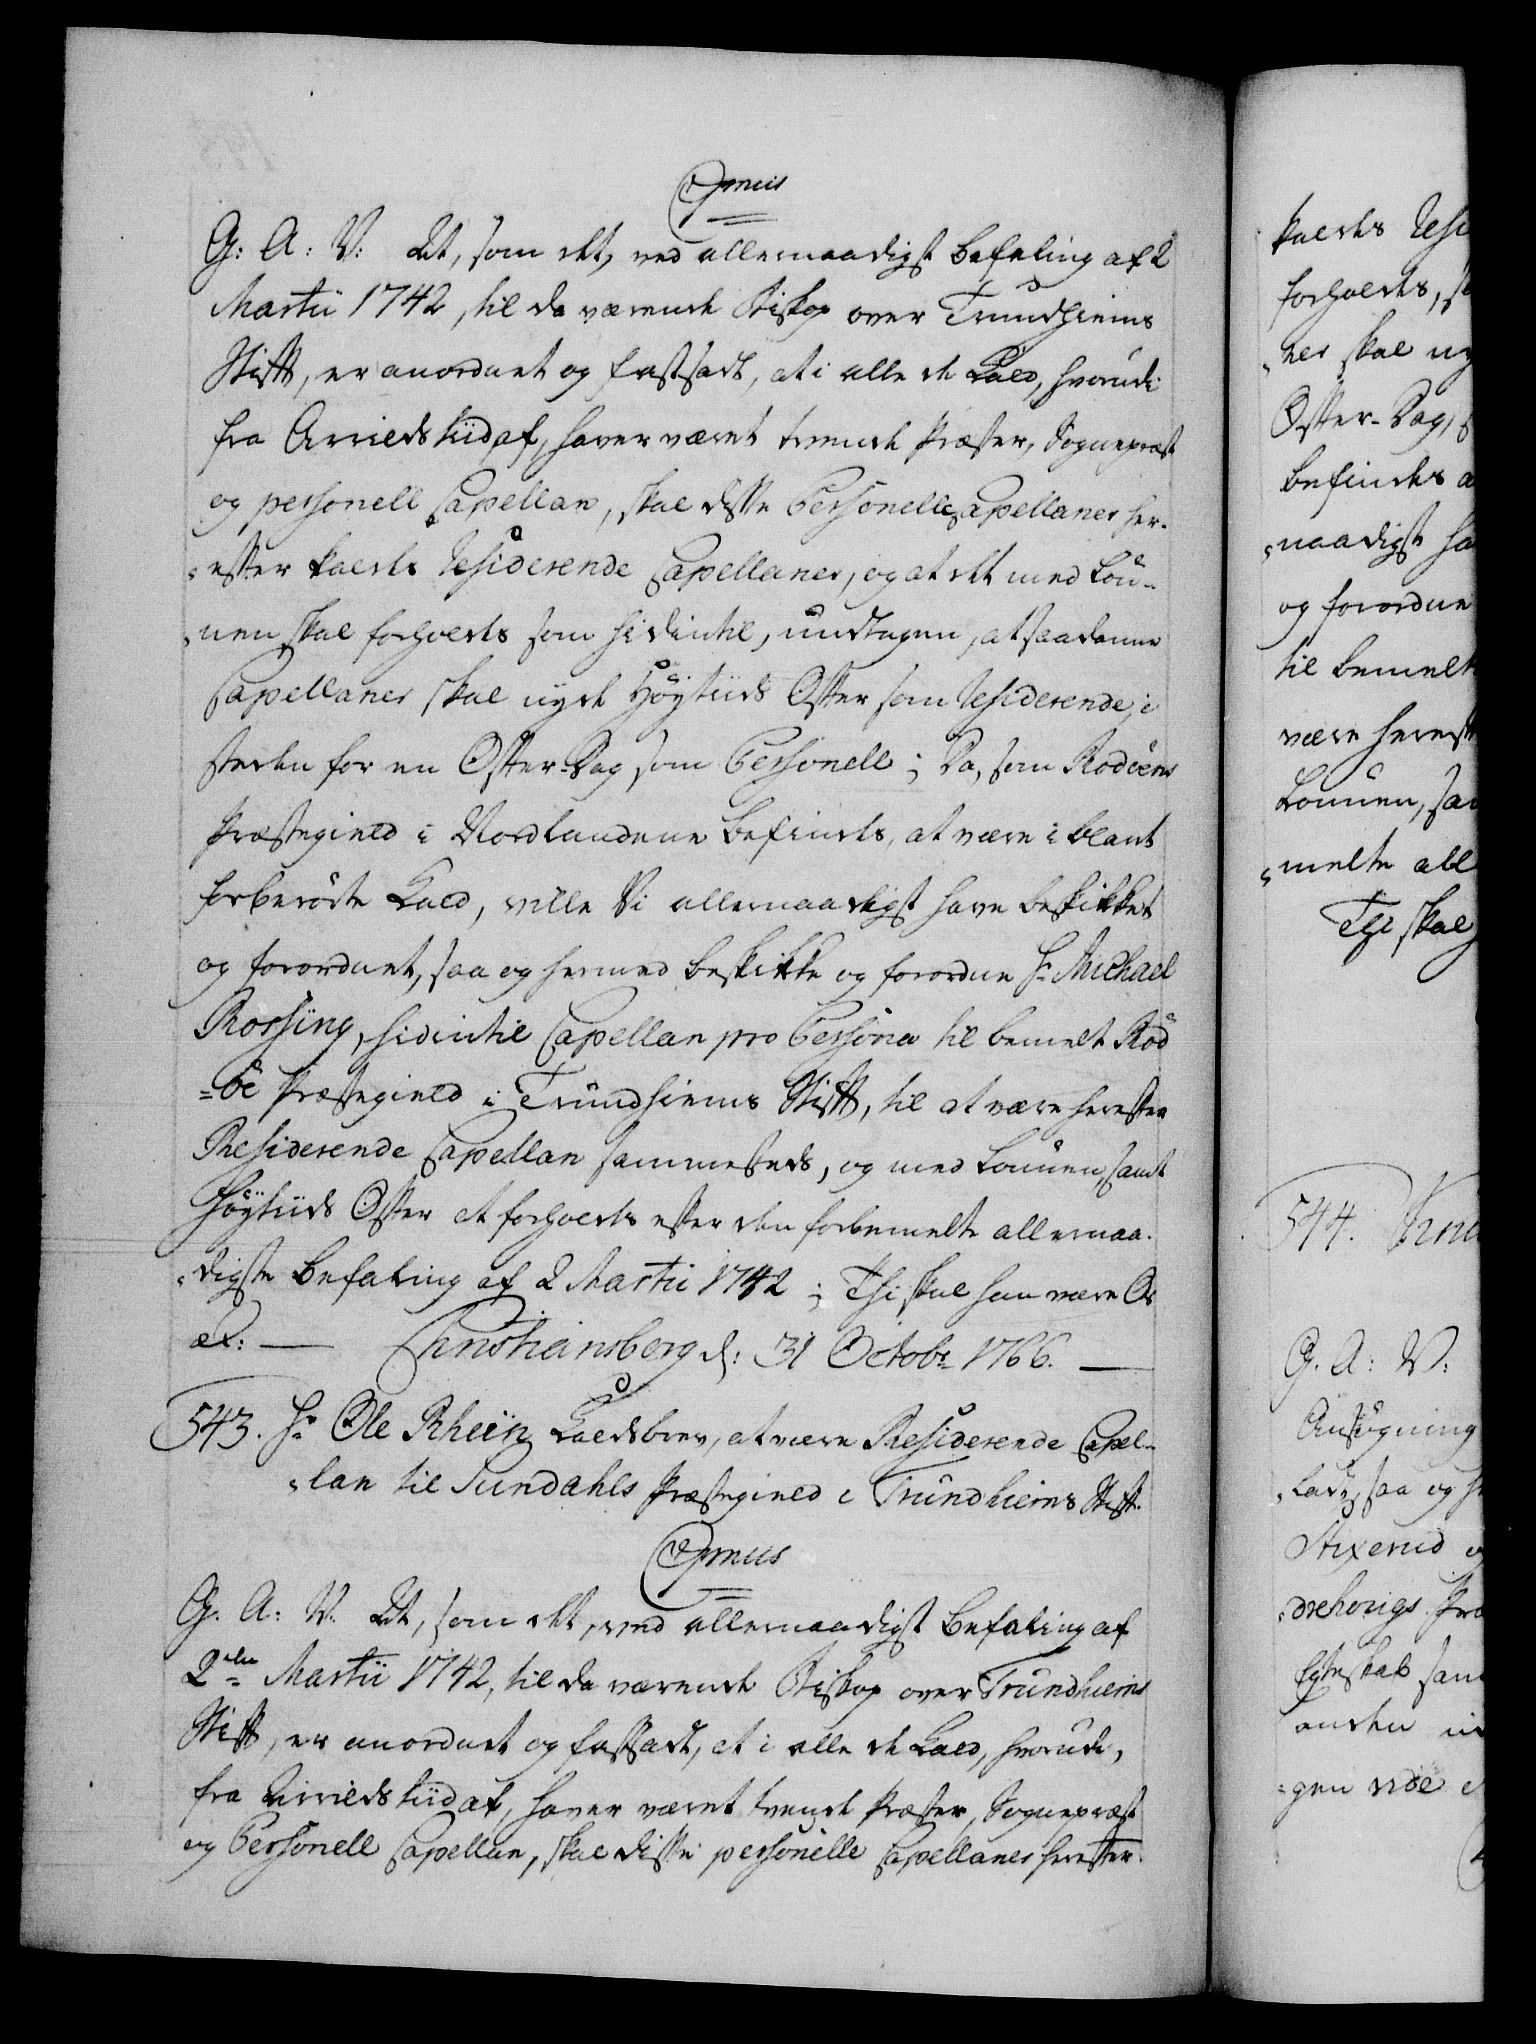 C7mus
G: A: V: At, som det, ved allernaadigst Befaling af 2
Martii 1742, til da værende Biskop over Trundhiems
Stift, er anordnet og fastsadt, at i alle de Kald, hvorudi
fra Arrilds tiid af, haver været tvende Præster, Sognepræst
og personell Capellan, skal disse Personelle Capellaner her-
„efter kaldes Residerende Capellaner, og at det med Løn-
„nen skal forholdes som hidindtil, undtagen, at saadanne
Capellaner skal nyde Høytiids Offer som Residerende, i
steden for en Offer-Dag som Personell; Da, som Rodøens
Præstegield i Nordlandene befindes, at være i blant
forberørte Kald, ville Vi allernaadigst have beskikket
og forordnet, saa og hermed beskikke og forordne Hr Michael
Rossing, hidindtil Capellan pro Persona til bemelt Rød
=øe Præstegield i Trundhiems Stift, til at være herefter
Residerende Capellan sammesteds, og med Lønnen, samt
Høytiids Offer at forholdes efter den forbemelte allernaa-
„digste Befaling af 2 Martii 1742; Thi skal han være Os
etc: — Christiansborg d: 31 Octobr 1766. —
543. Hr Ole Rheiin Kaldsbrev, at være Residerende Capel-
„lan til Sundahls Præstegield i Trundhiems Stift.
C7mus
G. A: V. At, som det, ved allernaadigst Befaling af
2den Martii 1742, til da værende Biskop over Trundhiems
Stift, er anordnet og fastsadt, at i alle de Kald, hvorudi,
fra Arrilds tiid af, haver været tvende Præster, Sognepræst
og Personell Capellan, skal disse personelle Capellaner herefter
kaldes Resi
forholdes, so
„ner skal ny
Offer-Dag, s
befindes a
„naadigst ha
og forordne
til bemelt
være hereft
Lønnen, sam
„melte all
Thi skal
544.
G. A: V:
Ansøgning
„ladt, saa og h
Stixrud o
Egteskab sam
anden
„gen vide